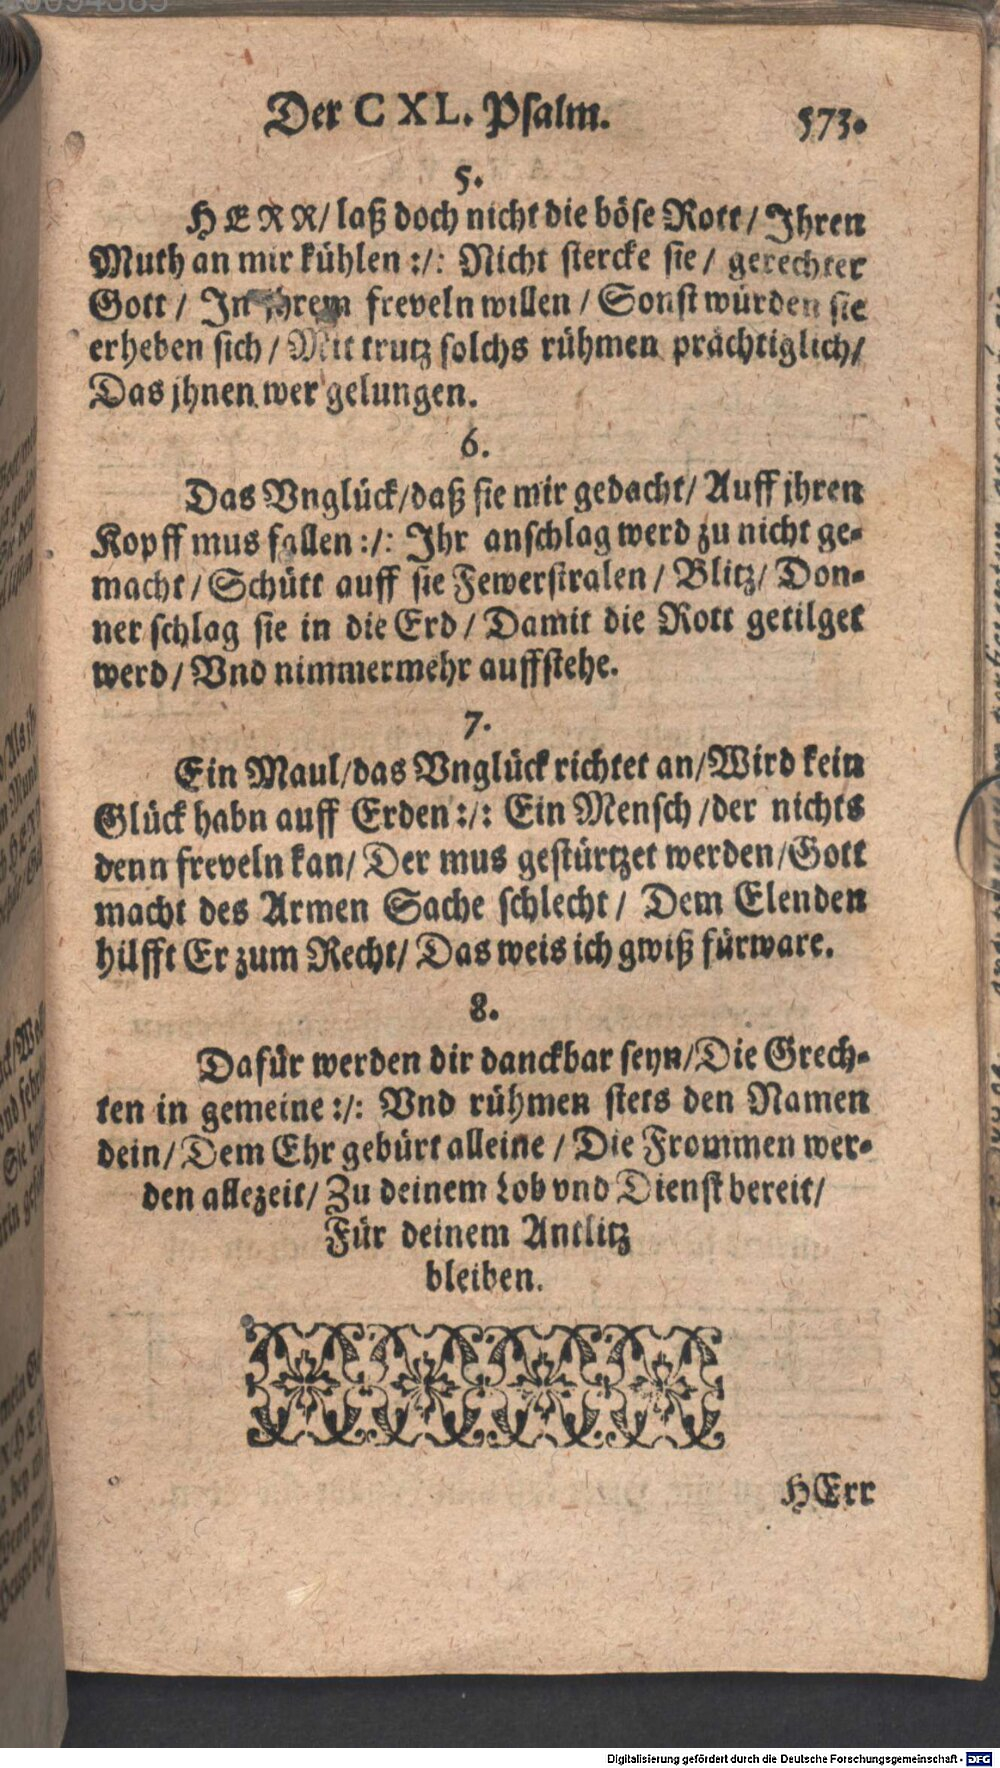 Der CXL. Psalm. 573.
5.
HERR/ laß doch nicht die böse Rott/ Ihren
Muth an mir kühlen :/: Nicht stercke sie/ gerechter
Gott/ In ihrem freveln willen/ Sonst würden sie
erheben sich/ Mit trutz solchs rühmen prächtiglich/
Das jhnen wer gelungen.
6.
Das Vnglück/daß sie mir gedacht/ Auff jhren
Kopff mus fallen :/: Ihr anschlag werd zu nicht ge-
macht/ Schütt auff sie Fewerstralen/ Blitz/ Don-
ner schlag sie in die Erd/ Damit die Rott getilget
werd/ Vnd nimmermehr auffstehe.
7.
Ein Maul/das Vnglück richtet an/Wird kein
Glück habn auff Erden :/: Ein Mensch/der nichts
denn freveln kan/ Der mus gestürtzet werden/Gott
macht des Armen Sache schlecht/ Dem Elenden
hilfft Er zum Recht/ Das weis ich gwiß fürware.
8.
Dafür werden dir danckbar seyn/Die Grech-
ten in gemeine :/: Vnd rühmen stets den Namen
dein/ Dem Ehr gebürt alleine/ Die Frommen wer-
den allezeit/ Zu deinem Lob vnd Dienst bereit/
Für deinem Antlitz
bleiben.
HErr
Digitalisierung gefördert durch die Deutsche Forschungsgemeinschaft - DFG